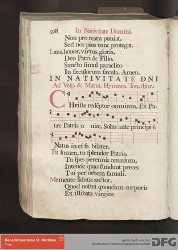 208 In Nativitate Domini
Non pro reatu puniat,
Sed nos pius tunc protegat.
Laus, honor, virtus, gloria,
Deo Patri & Filio,
Sancto simul paradito
In sæculorum sæcula. Amen.
IN NATIVITATE DNI
Ad Vesp. & Matut. Hymnus.
Christe redemptor omnium, Ex Pa-
tre Patris u nice, Solus ante principi u
Natus in effabiliter.
Tu lumen, tu splendor Patris,
Tu spes perennis omnium,
Intende quas fundunt preces
Tui per orbem famuli.
Memento salutis auctor,
Quod nostri quondam corporis
Ex illibata virgine
Benediktinerabtei St. Matthias
Trier
DFG